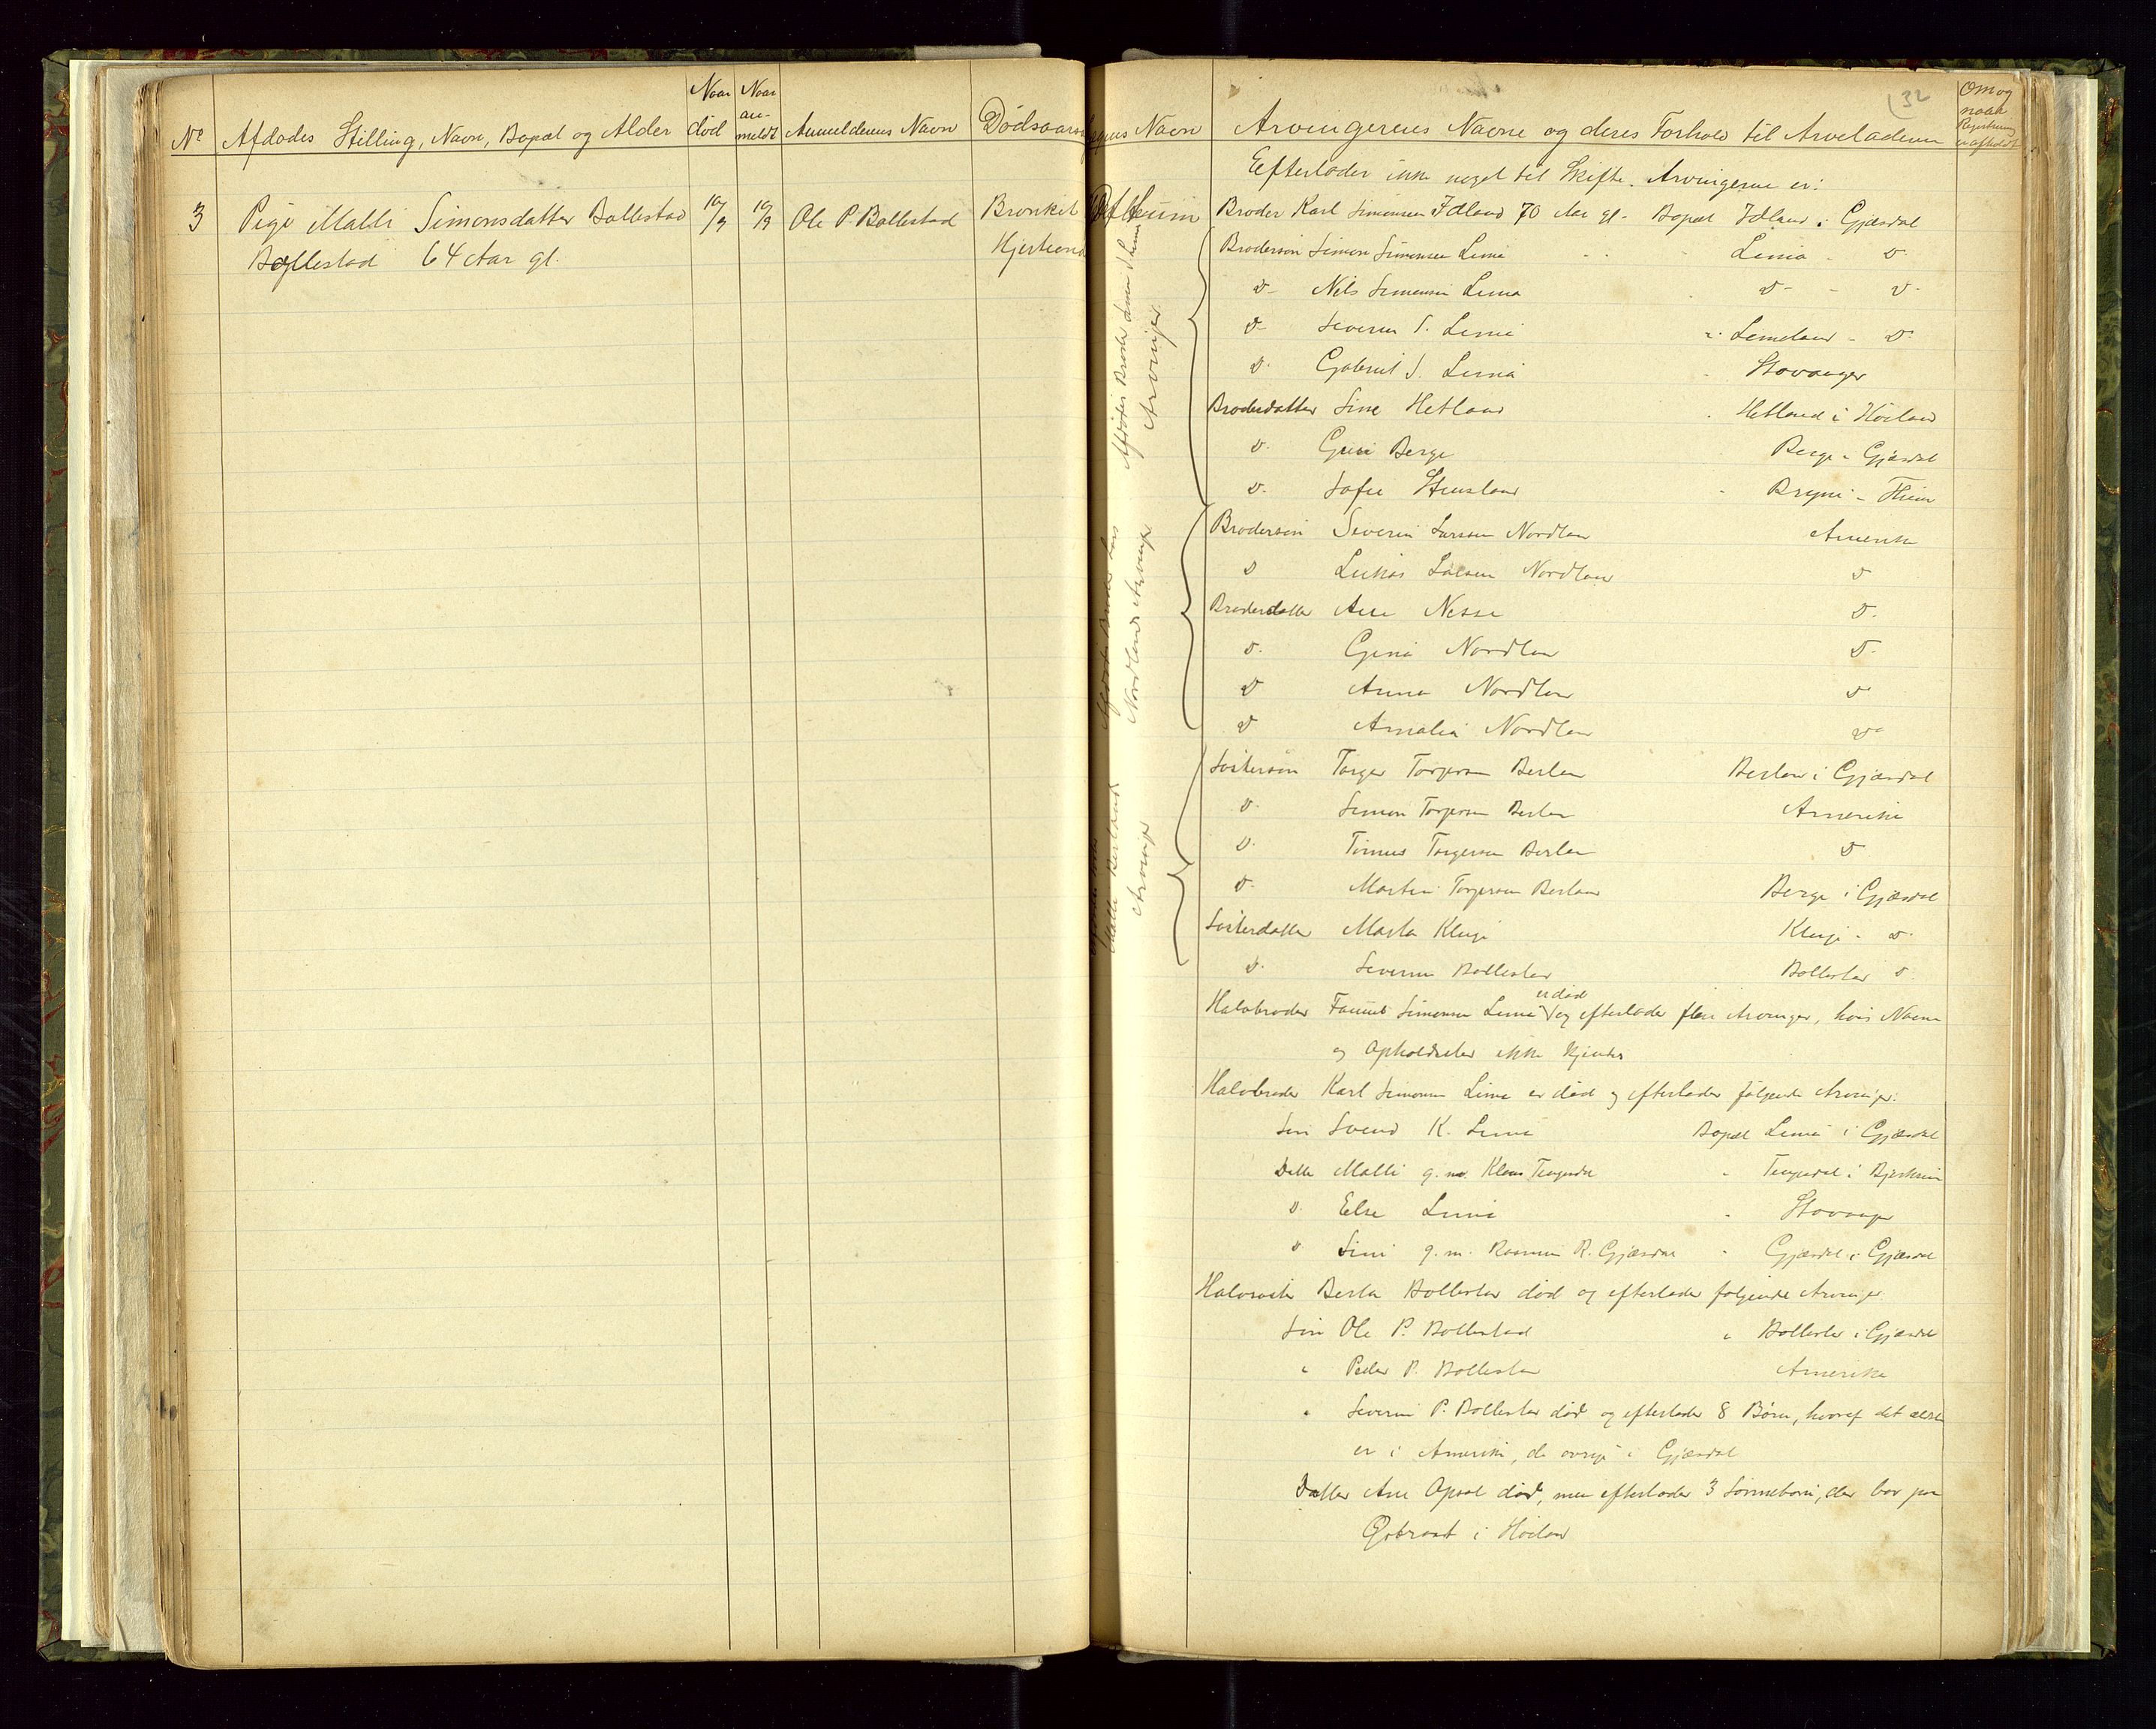 No Afdødes Stilling, Navn, Bopæl og Alder
Naar død
Naar anmeldt
Anmelderens Navn
Dødsaarsag
Navn
Arvingernes Navne og deres Forhold til Arveladeren
Om og naar Registrering er afholdt
32
3 Pige Malde Simonsdatter Bollestad
Bollestad 64 Aar gl.
10/9
10/9
Ole P. Bollestad
Bronkit
Hjerte
Efterlader ikke noget til Skifte. Arvingerne er:
Broder Karl Simonsen Idland 70 Aar gl. Bopæl Idland i Gjæsdal
Brodersøn Simon Simonsen Lima - Lima - D.
D- Nils Simonsen Lima - D- - D-
D- Severin S. Lima - Limeland - D-
D. Gabriel S. Lima - Stavanger
Broderdatter Sine Hetland - Hetland i Høiland
D. Guri Berge Berge - Gjæsdal
D. Sofie - Bryne - Thime
Brodersøn Severin Larsen Nordland Amerika
D Lukas Larsen Nordland D
Broderdatter Ane Nesse D.
D. Gina Nordland D.
D Anna Nordland D
D Amalia Nordland D
Søstersøn Torger Torgersen Berland Berland i Gjæsdal
D. Simon Torgersen Berland Amerika
D. Tønnes Torgersen Berland D
D. Martin Torgersen Berland Berge i Gjæsdal
Søsterdatter Marta Kluge Kluge - D.
D. Severine Bollestad Bollestad D.
Halvbroder Simonsen Lima er død og efterlader flere Arvinger, hvis Navne
og Opholdssted ikke kjendes
Halvbroder Karl Simonsen Lima er død og efterlader følgende Arvinger:
Søn Svend K. Lima Bopæl Lima i Gjæsdal
Datter Malli g.m. Klaus Tengesdal - Tengesdal i Bjerkreim
D. Else Lima - Stavanger
D Sine g.m. Rasmus R. Gjæsdal - Gjæsdal i Gjæsdal
Halvsøster Berta Bollestad død og efterlader følgende Arvinger
Søn Ole P. Bollestad " Bollestad i Gjæsdal
" Peder P. Bollestad Amerika
" Severin P. Bollestad død og efterlader 8 Børn, hvoraf det ældste
er i Amerika, de øvrige i Gjæsdal
Datter Ane Opsal død, men efterlader 3 Sønnebørn, der bor paa
i Høiland
Afdødes Broder Simon S. Lima
Arvinger
Afdødes Broder Lars
Nordlands Arvinger
Malli Berland
Arvinger